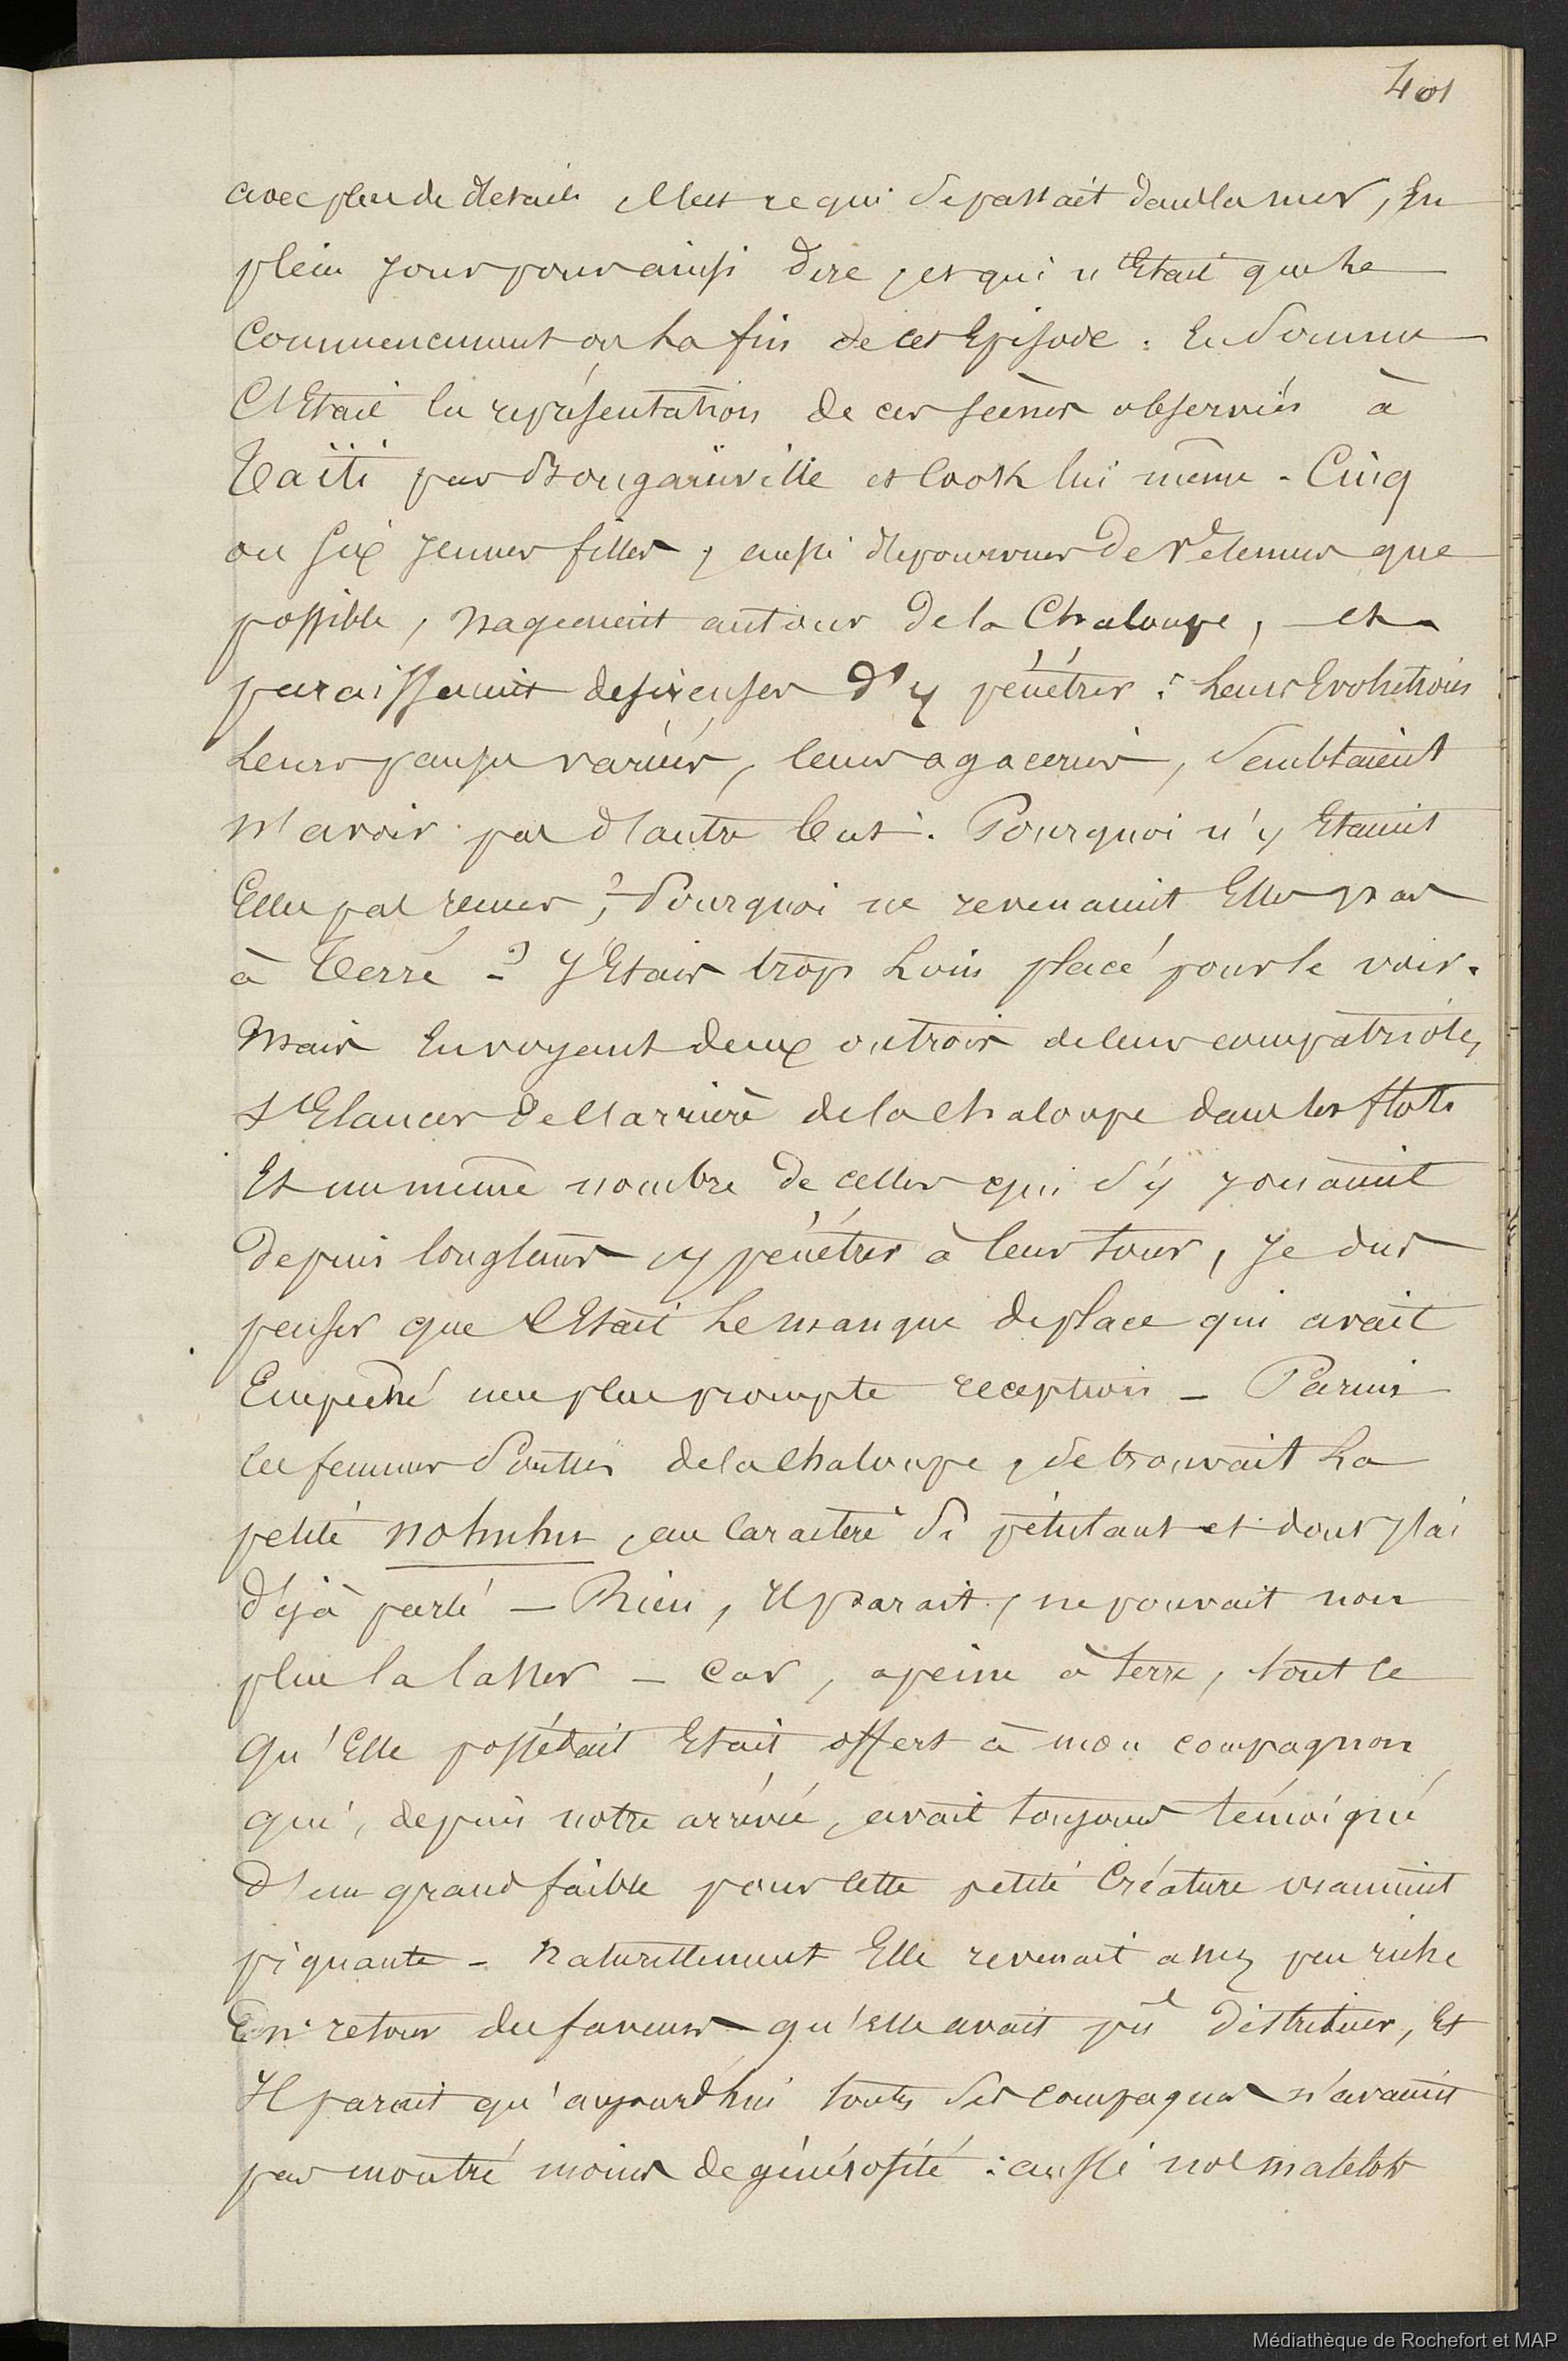 401
avec plus de details, c'est ce qui se passait dans la mer, en
plein jour pour ainsi dire, et qui n'Etait que le
Commencement ou La fin de cet Episode : En Somme
C'Etait la représentation de ces scènes observées à
Taïti par Bougainville et Cook lui même - Cinq
ou six jeunes filles, aussi depourvues de vetemens que
possible, nageaient autour de la Chaloupe, et
paraissaient desireuses d'y pénétrer : Leurs Evolutions
Leurs pauses variées, leurs agaceries, Semblaient
n'avoir pas d'autre but. Pourquoi n'y Etaient
Elles pas reçues ? - Pourquoi ne revenaient Elles pas
à Terre - ? J'Etais trop Loin placé pour le voir.
Mais En voyant deux ou trois de leurs compatriotes
s'Elancer de l'arrière de la chaloupe dans les flots
Et un même nombre de celles qui s'y jouaient
depuis longtems y pénétrer à leur tour, je dus
penser que c'Etait Le manque de place qui avait
Empeché une plus prompte reception - Parmi
les femmes Sorties de la Chaloupe, se trouvait La
petite nohuhu, au Caractere si pétulant et dont j'ai
déjà parlé - Rien, Il parait, ne pouvait non
plus la lasser - Car, a peine à terre, tout ce
Qu'Elle possédait Etait offert à mon compagnon
qui, depuis notre arrivée, avait toujours témoigné
d'un grand faible pour cette petite Créature vraiment
piquante - Naturellement Elle revenait assez peu riche
En retour des faveurs qu'elle avait pu distribuer, Et
Il parait qu'aujourd'hui toutes ses compagnes n'avaient
pas montré moins de générosité : aussi nos matelots
Médiathèque de Rochefort et MAP